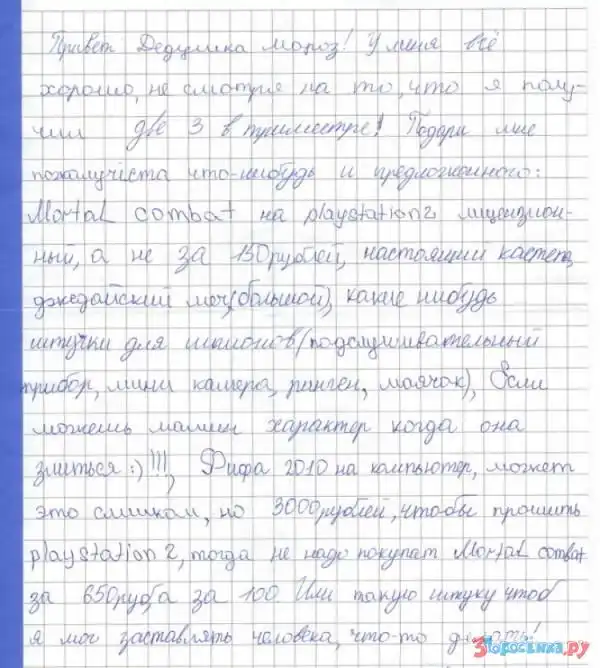 Привет Дедушка мороз! У меня всё
хорошо, не смотря на то, что я полу-
чил две 3 в триместре! Подари мне
пожалуйста что-нибудь и предложенного:
Mortal combat на playstation2 лицензион-
ный, а не за 150рублей, настоящий кастет,
джедайский меч(большой), какие нибудь
штучки для шпионов(подслушивательный
прибор, мини камера, ренген, маячок), Если
можешь мамин характер когда она
злиться :)!!!, Фифа 2010 на компьютер, может
это слишком, но 3000рублей, чтобы прошить
playstation 2, тогда не надо покупат Mortal combat
за 650руб, а за 100 Или такую штуку чтоб
я мог заставлять человека, что-то делать!
3Поросенка.ру